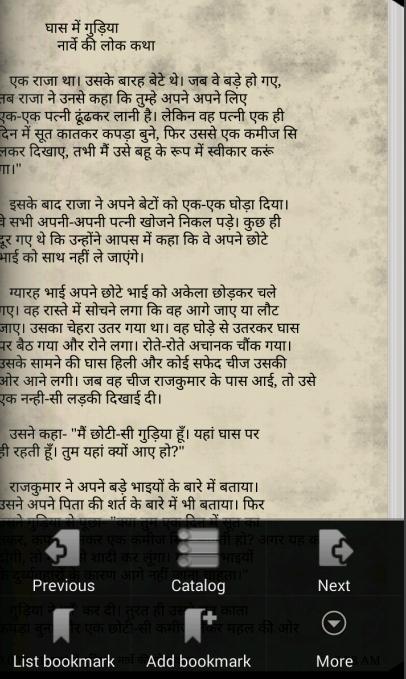 घास में गुड़िया
नार्वे की लोक कथा
एक राजा था। उसके बारह बेटे थे। जब वे बड़े हो गए,
तब राजा ने उनसे कहा कि तुम्हे अपने अपने लिए
एक-एक पत्नी ढूंढकर लानी है। लेकिन वह पत्नी एक ही
दिन में सूत कातकर कपड़ा बुने, फिर उससे एक कमीज सि
लकर दिखाए, तभी मैं उसे बहू के रूप में स्वीकार करूं
गा।"
इसके बाद राजा ने अपने बेटों को एक-एक घोड़ा दिया।
वे सभी अपनी-अपनी पत्नी खोजने निकल पड़े। कुछ ही
दूर गए थे कि उन्होंने आपस में कहा कि वे अपने छोटे
भाई को साथ नहीं ले जाएंगे।
ग्यारह भाई अपने छोटे भाई को अकेला छोड़कर चले
गए। वह रास्ते में सोचने लगा कि वह आगे जाए या लौट
जाए। उसका चेहरा उतर गया था। वह घोड़े से उतरकर घास
पर बैठ गया और रोने लगा। रोते-रोते अचानक चौंक गया।
उसके सामने की घास हिली और कोई सफेद चीज उसकी
ओर आने लगी। जब वह चीज राजकुमार के पास आई, तो उसे
एक नन्ही-सी लड़की दिखाई दी।
उसने कहा- "मैं छोटी-सी गुड़िया हूँ। यहां घास पर
ही रहती हूँ। तुम यहां क्यों आए हो?"
राजकुमार ने अपने बड़े भाइयों के बारे में बताया।
उसने अपने पिता की शर्त के बारे में भी बताया। फिर
उसने गुड़िया से पूछा- "क्या तुम एक दिन में सूत का
एक कमीज
शादी कर लूंगा।
के कारण आगे नहीं जाना चाहता।"
Previous
Catalog
Next
गुड़िया ने हां कर दी। तुरत ही उसने सूत काता
एक छोटी-सी कमीज महल की ओर
List bookmark
Add bookmark
More